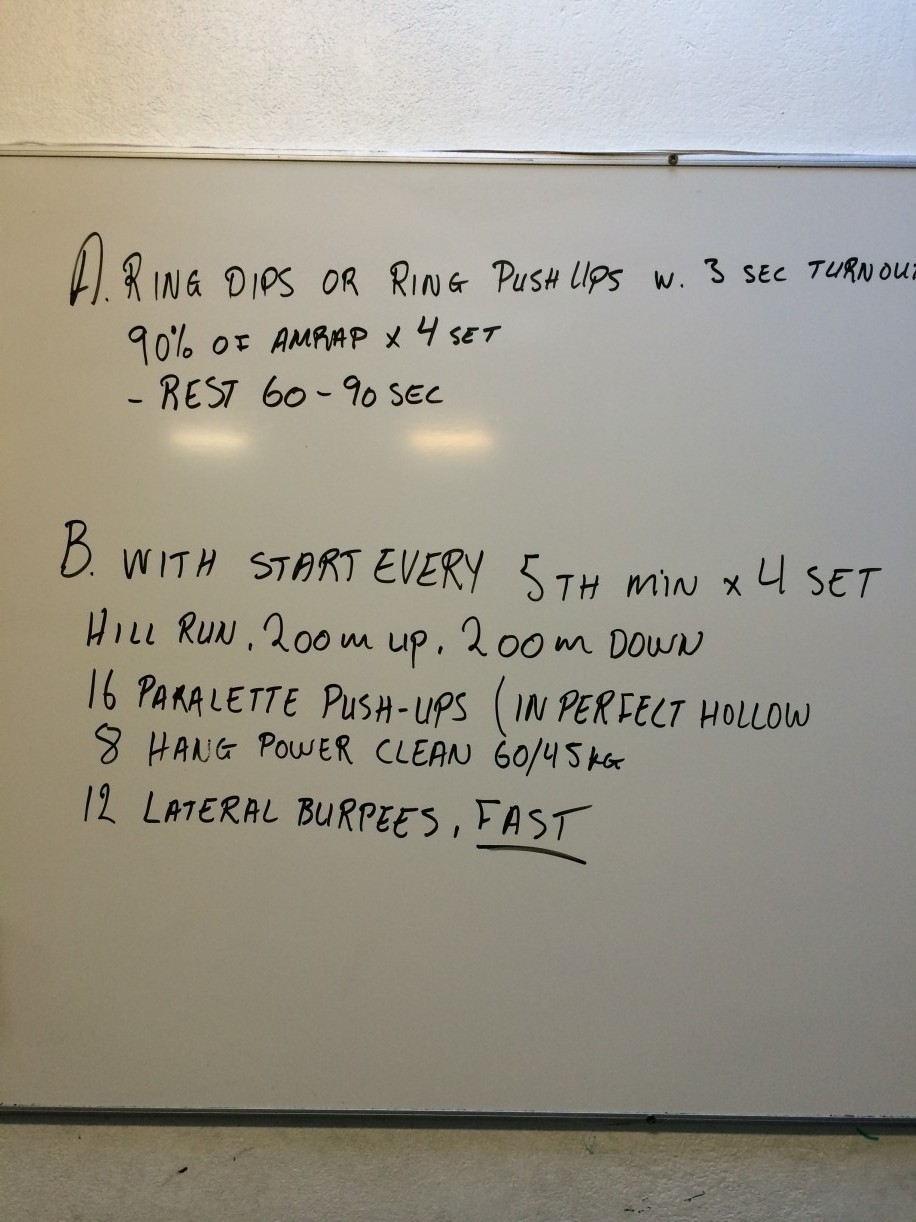 A. RING DIPS OR RING PUSH UPS W. 3 SEC TURNOUT
90% OF AMRAP X 4 SET
- REST 60-90 SEC
B. WITH START EVERY 5TH MIN X 4 SET
HILL RUN, 200m UP, 200m DOWN
16 PARALETTE PUSH-UPS (IN PERFECT HOLLOW
8 HANG POWER CLEAN 60/45KG
12 LATERAL BURPEES, FAST